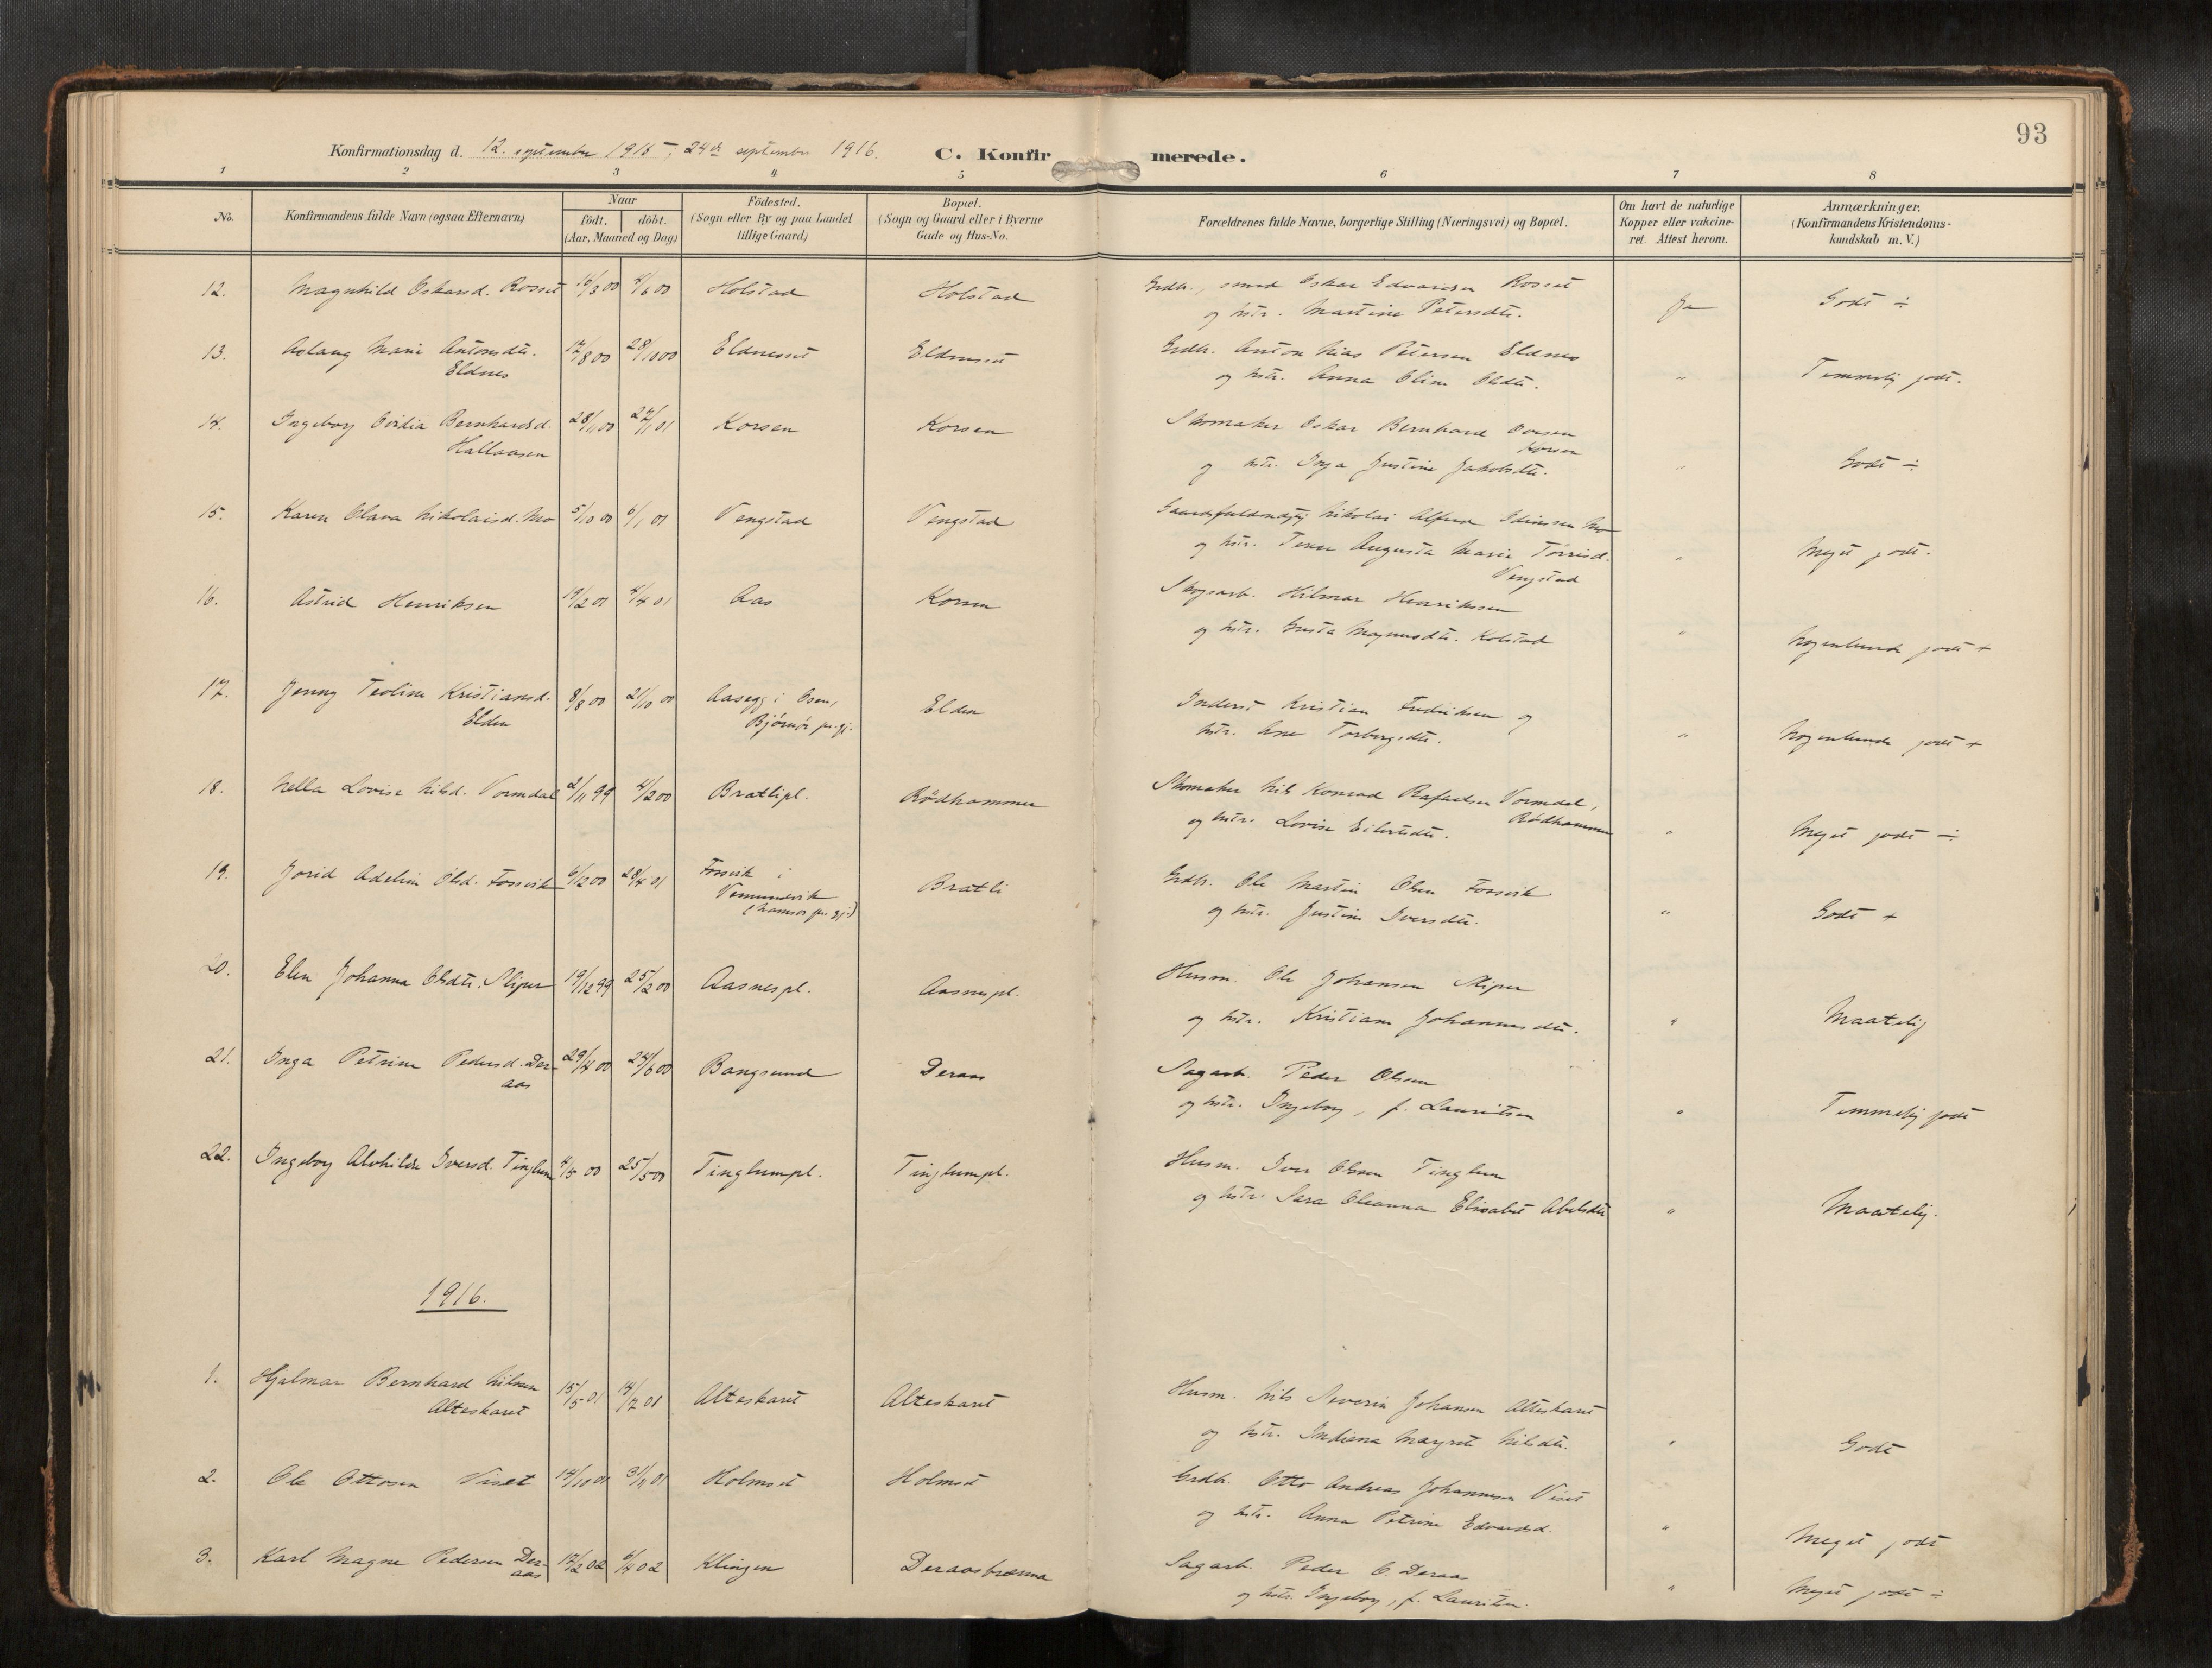 93
Konfirmationsdag d. 12. september 1915, 24de september 1916. C. Konfirmerede.
1 2 3 4 5 6 7 8
No.
Konfirmandens fulde Navn (ogsaa Efternavn)
Naar
födt. döbt.
(Aar, Maaned og Dag)
Födested.
(Sogn eller By og paa Landet
tillige Gaard)
Bopæl.
(Sogn og Gaard eller i Byerne
Gade og Hus-No.
Forældrenes fulde Navne, borgerlige Stilling (Næringsvei) og Bopæl.
Om havt de naturlige
Kopper eller vakcine-
ret. Attest herom.
Anmærkninger.
(Konfirmandens Kristendoms-
kundskab m. V.)
12. Magnhild Oskarsd. Rosset 16/3 00 4/6 00 Holstad Holstad Grdb., smed Oskar Edvardsen Rosset
og hstr. Martine Petersdtr. Ja Godt ÷
13. Aslaug Marie Antonsdtr. 17/8 00 28/10 00 Eldnesset Eldnesset Grdb. Anton Petersen Eldnes
Eldnes og hstr. Anna Oline Olsdtr. " Temmelig godt.
14. Ingeborg Ovidia Bernhardsd. 28/11 00 27/1 01 Korsen Korsen Skomaker Oskar Bernhard Ovesen
Hallaasen Korsen
og hstr. Inga Justine Jakobsdtr. " Godt ÷
15. Karen Olava Nikolaisd. Mo 5/10 00 6/1 01 Vengstad Vengstad Gaardsfuldmægtig Nikolai Alfred Idinssen Mo
og hstr. Augusta Marie Torrisd. " Meget godt.
Vengstad
16. Astrid Henriksen 19/2 01 4/4 01 Aas Korsen Skogsarb. Hilmar Henrikssen
og hstr. Gusta Magnusdtr. Kolstad " Nogenlunde godt +
17. Jenny Teoline Kristiansd. 8/8 00 21/10 00 Aasegg i Osen, Elden Inderst Kristian Fredriksen og
Elden Bjørnør pr.gj. hstr. Ane Torbergsdtr. " Nogenlunde godt +
18. Nella Lovise Nilsd. Vormdal 2/11 99 4/2 00 Bratlipl. Rødhammer Skomaker Nils Konrad Rafaelsen Vormdal,
Rødhammer
og hstr. Lovise Eilertsdtr. " Meget godt ÷
19. Jorid Adeline Olsd. Fossvik 6/12 00 28/4 01 Fossvik i Bratli Grdb. Ole Martin Olsen Fossvik
Vemundvik
(Namsos pr. gj.) og hstr. Justine Iversdtr. " Godt +
20. Elen Johanna Olsdtr. Sliper 19/12 99 25/2 00 Aasnespl. Aasnespl. Husm. Ole Johansen Sliper
og hstr. Kristiane Johannesdtr. " Maatelig
21. Inga Petrine Pedersd. Der- 29/4 00 24/6 00 Bangsund Deraas Sagarb. Peder Olsen
aas og hstr. Ingeborg, f. Lauritsen " Temmelig godt
22. Ingeborg Alvhilde Iversd. Tinglum 4/5 00 25/5 00 Tinglumpl. Tinglumpl. Husm. Iver Olsen Tinglum
og hstr. Sara Oleanna Elisabet Abelsdtr " Maatelig.
1916.
1. Hjalmar Bernhard Nilssen 15/5 01 14/7 01 Alteskaret Alteskaret Husm. Nils Severin Johansen Alteskaret
Alteskaret og hstr. Indiana Margrete Nilsdtr. " Godt
2. Ole Ottosen Viset 14/10 01 31/11 01 Holmset Holmset Grdb. Otto Andreas Johannesen Viset
og hstr. Anna Petrine Edvardsd. " Meget godt
3. Karl Magne Pedersen Der- 17/2 02 6/4 02 Klingen Deraasbrænna Sagarb. Peder O. Deraas
aas og hstr. Ingeborg, f. Lauritsen. " Meget godt ÷